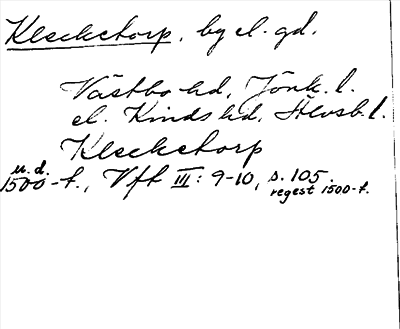 Kleckctorp, by el. gd.
Västbo hd, Jönk. l.
el. Kinds hd, Älvsb. l.
Kleckctorp
u. d.
1500-t., Vft III: 9-10, s. 105.
regest 1500-t.